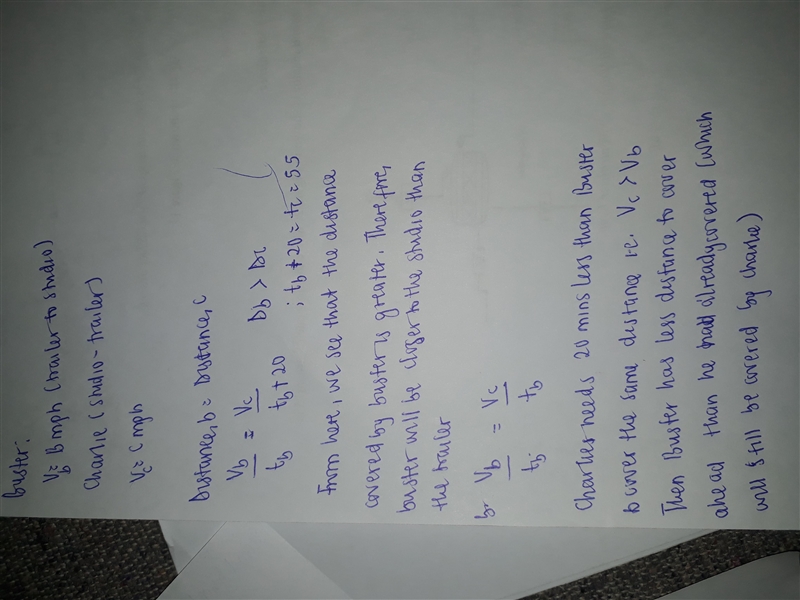 Buster:
Vb = B mph (trailer to studio)
Charlie (studio - trailer)
Vc = C mph
Distance, b = Distance, c
Vb/tb = Vc/tb+20 Db > Dc
; tb+20 = tc = 55
From here, we see that the distance
covered by buster is greater. Therefore,
buster will be closer to the studio than
the trailer
b. Vb/tb = Vc/tb
Charlier needs 20 mins less than Buster
to cover the same distance i.e. Vc > Vb
Then Buster has less distance to cover
ahead than he had already covered (which
will still be covered by charlie)